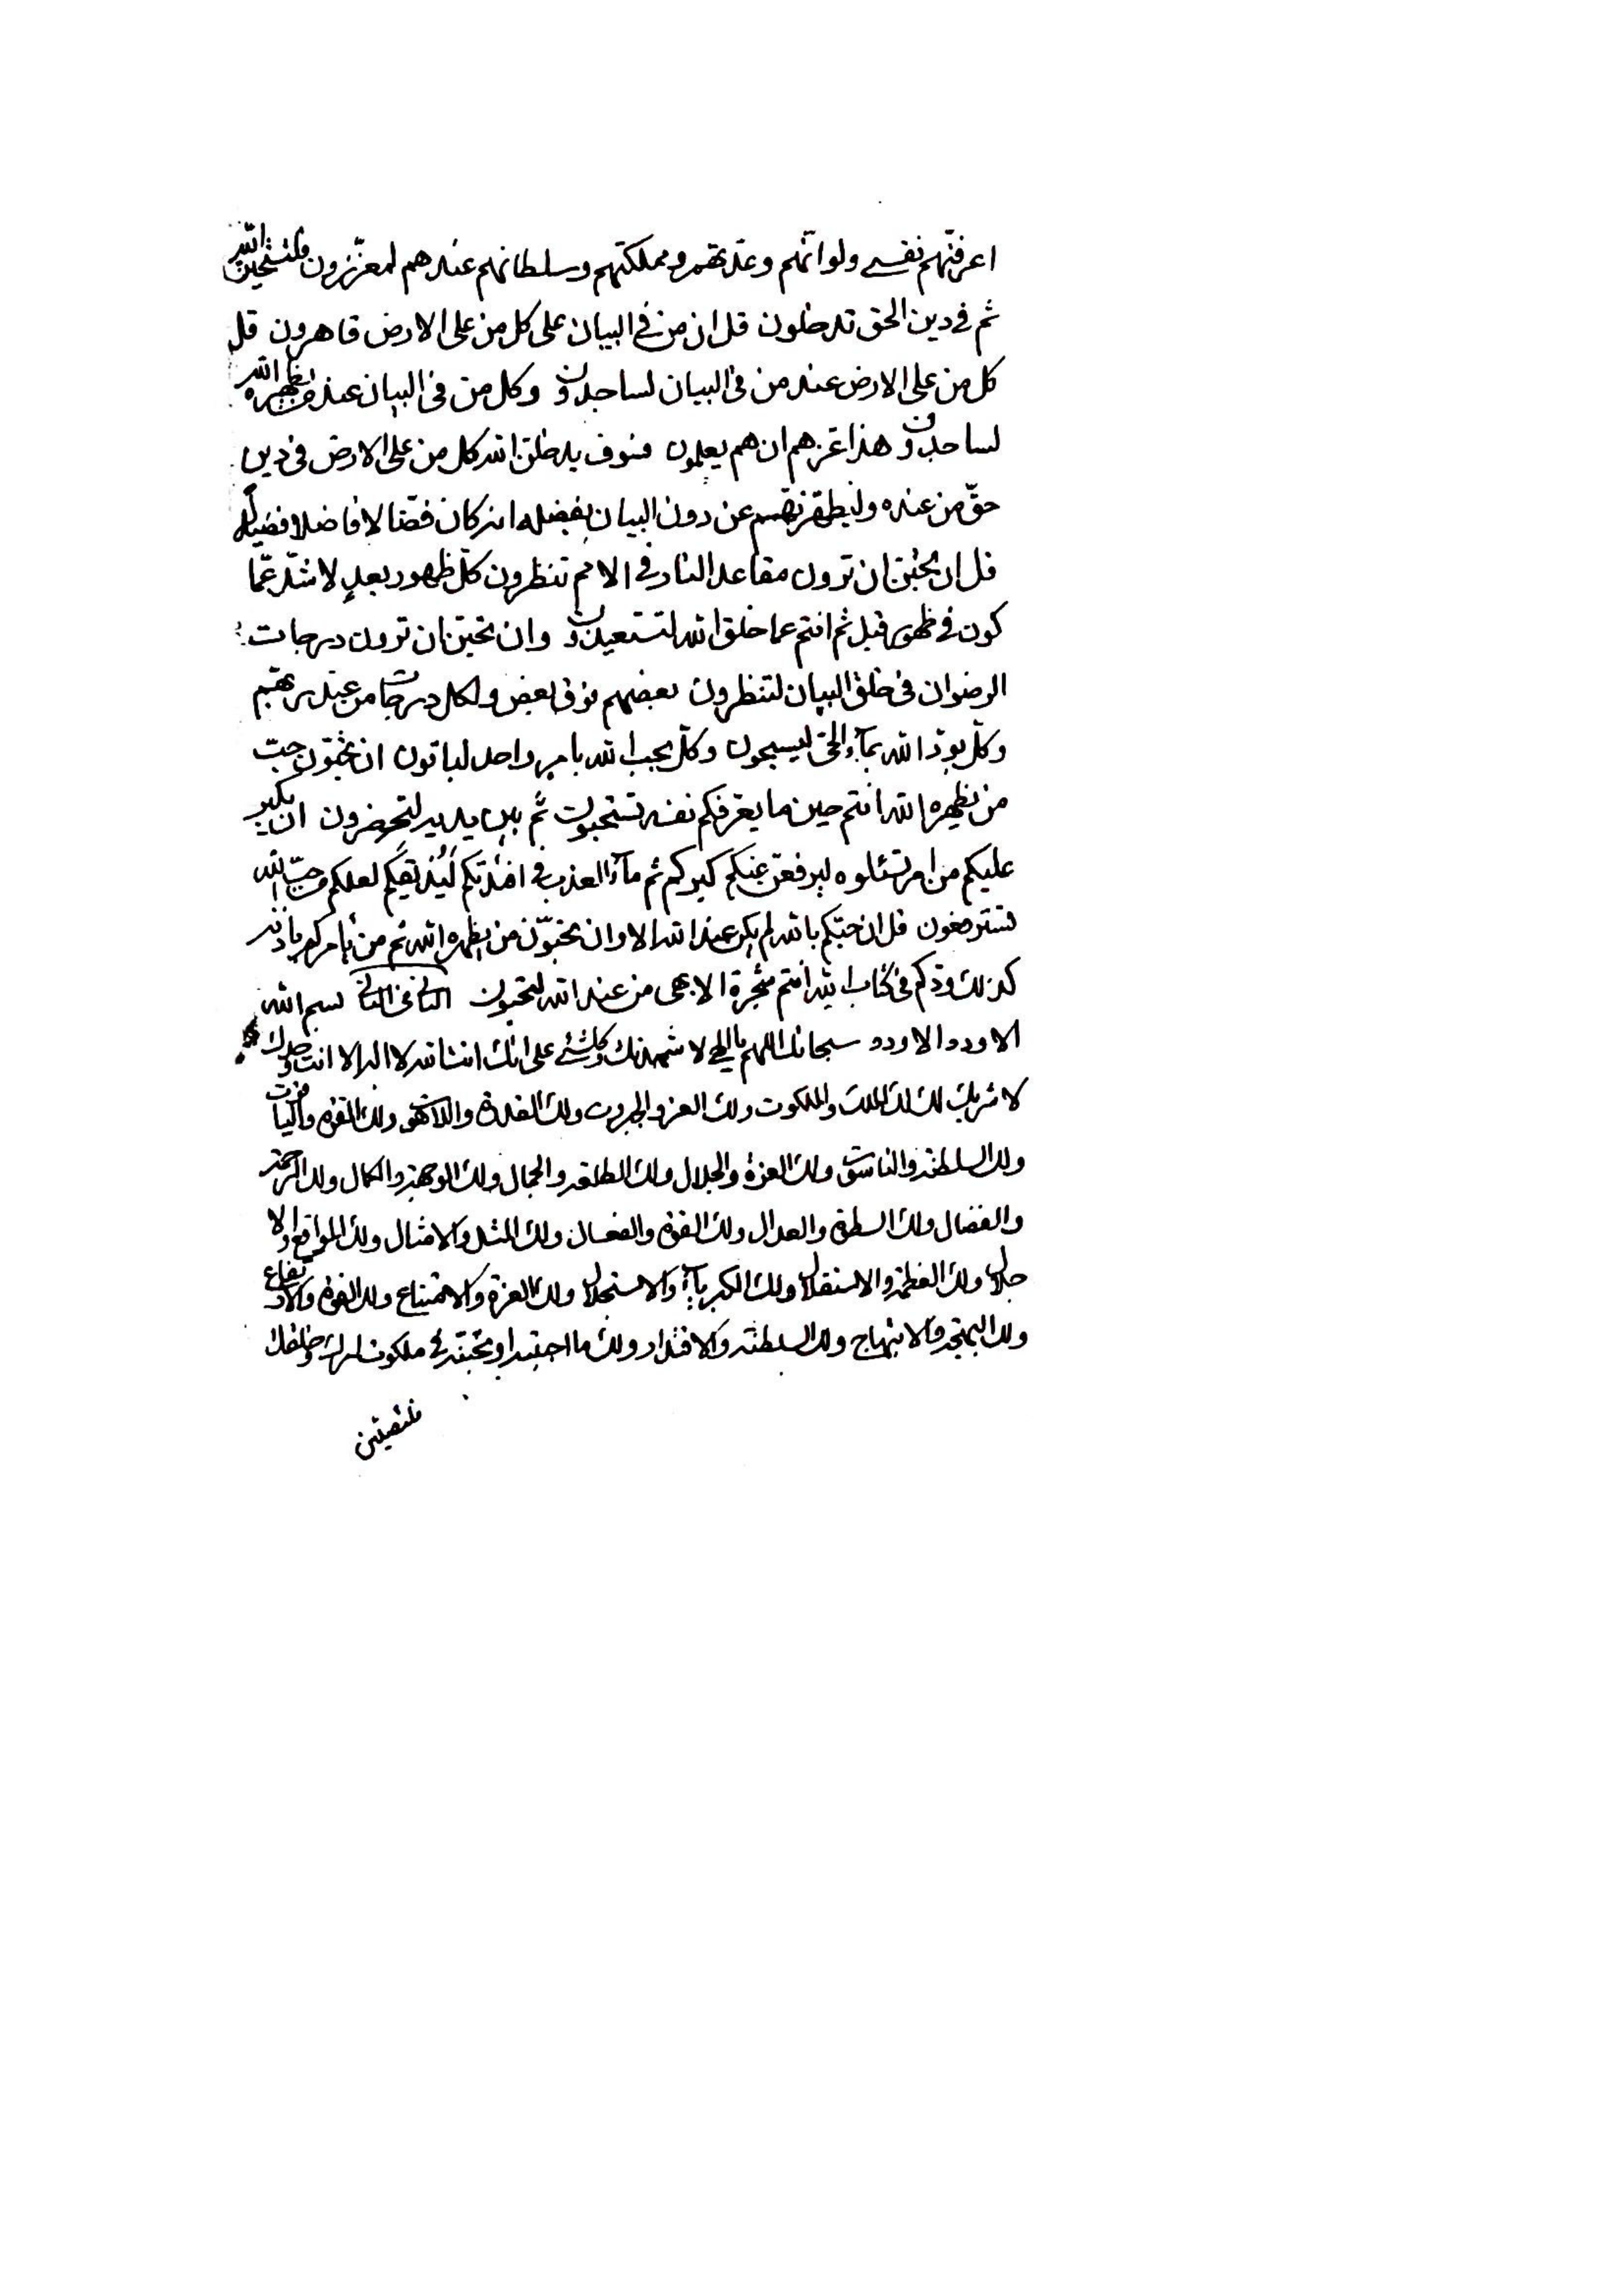 اعرفنّهم نفسي ولو انّهم وعدتهم ومملكتهم وسلطانهم عندهم لمعزّزون فلتستحيين الله
ثم في دين الحق تدخلون قل ان من في البيان على كل من على الارض قاهرون قل
كل من على الارض عند من في البيان لساجدون وكل من في البيان عند من يظهره الله
لساجدون وهذا عزهم ان هم يعلمون فسوف يدخلن الله كل من على الارض في دين
حقّ من عنده وليطهرنهم عن دون البيان بفضله انه كان فضالا فاضلا فضيلا
قل ان تحبّن ان ترون مقاعد النار في الامم تنظرون كلّ ظهور بعدٍ لاشدّ عمّا
كون في ظهور قبل ثم انتم عما خلق الله لتستعيذون وان تحبّن ان ترون درجات
الرضوان في خلق البيان لتنظرون بعضهم فوق بعض ولكل درجات من عند ربهم
وكلّ بودّ الله بمآء الحق ليسبحون وكلّ بحب الله بامر واحد لياتون ان تحبّون حبّ
من يظهره الله انتم حين ما يعرفكم نفسه تستحبون ثمّ بين يديه لتحضرون ان يكبر
عليكم من امر تسئلوه ليرفعن عنكم كبركم ثم مآء العذب في افئدتكم ليذيقكم لعلكم حبّ الله
تسترضعون قل ان حبّكم بالله لم يكن عند الله الا وان تحبّون من يظهره الله ثم من يامركم باذنه
كذلك وذكم في كتاب الله انتم شجرة الابهى من عند الله لتحبون الثاني في الثاني بسم الله
الاودد الاودد سبحانك اللهم يا الهي لاشهدنك وكلشئ على انك انت الله لا اله الا انت وحدك
لا شريك لك لك الملك والملكوت ولك العز والجبروت ولك القدرة واللاهوت ولك القوة والياقوت
ولك السلطنة والناسوت ولك العزة والجلال ولك الطلعة والجمال ولك الوجهة والكمال ولك الرحمة
والفضال ولك السطوة والعدال ولك القوة والفعال ولك المثل والامثال ولك المواقع والا
جلال ولك العظمة والاستقلال ولك الكبرياء والاستجلال ولك العزة والامتناع ولك القوة والارتفاع
ولك البهجة والابتهاج ولك السلطنة والاقتدار ولك ما احببته او تحبنه في ملكوت امرك وخلقك